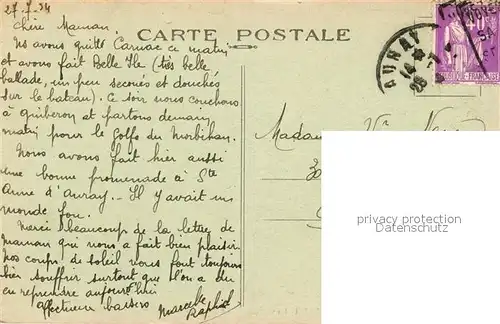 27.7.34
Chère Maman.
CARTE POSTALE
Ns avons quitté Carnac ce matin
et avons fait Belle Ile (très belle
ballade, un peu secoués et douchés
sur le bateau). Ce soir nous couchons
à Quiberon et partons demain
matin pour le Golfe du Morbihan.
Nous avons fait hier aussi
une bonne promenade à Ste
Anne d'Auray.. Il y avait un
monde fou.
Merci beaucoup de la lettre de
Maman qui nous a fait bien plaisir.
Nos coups de soleil nous font toujours
bien souffrir surtout que l'on a du
en reprendre aujourd'hui
affectueux baisers
Marcelle
Raphaël
AURAY
Madame Vve
privacy protection
Datenschutz